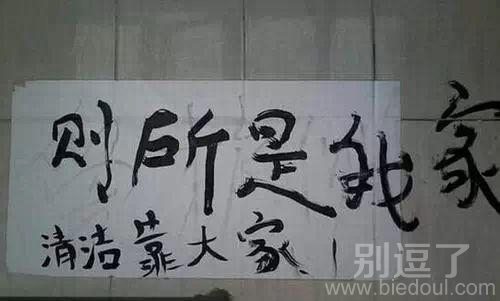 则所是我家
清洁靠大家！
别逗了
www.biedoul.com